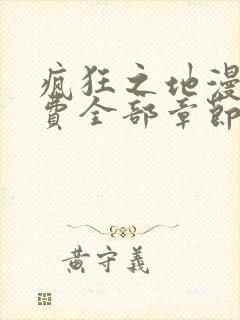 疯狂之地漫
費全部章節
黃守義